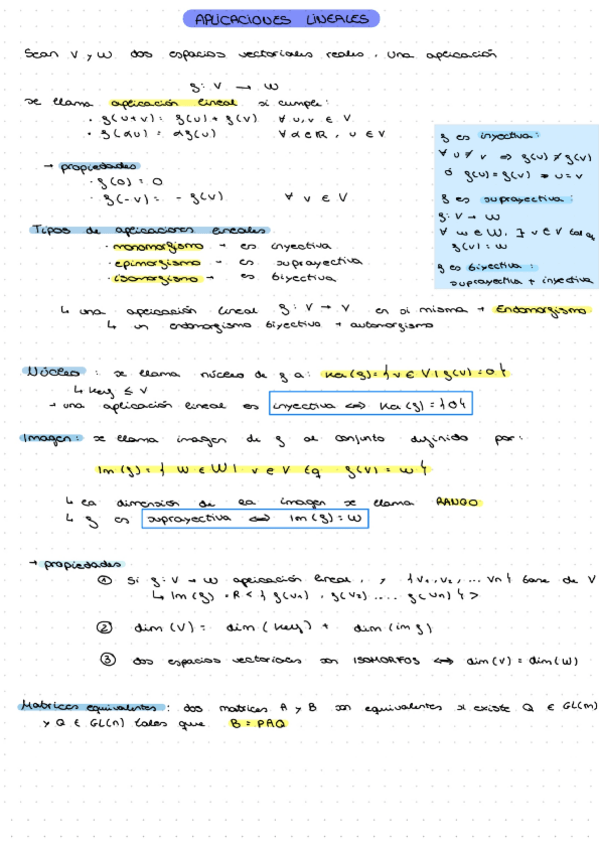 APLICACIONES LINEALES
Sean V y W dos espacios vectoriales reales. Una aplicación
f: V → W
se llama aplicación lineal si cumple:
· f(u+v) = f(u) + f(v) ∀ u,v ∈ V
· f(αu) = αf(u) ∀ α ∈ R, u ∈ V
→ propiedades
· f(0) = 0
· f(-v) = - f(v) ∀ v ∈ V
f es inyectiva:
∀ u ≠ v ⇒ f(u) ≠ f(v)
ó f(u) = f(v) ⇒ u = v
f es suprayectiva:
f: V → W
∀ w ∈ W, ∃ v ∈ V tal que
f(v) = w
f es biyectiva:
suprayectiva + inyectiva
Tipos de aplicaciones lineales
· monomorfismo → es inyectiva
· epimorfismo → es suprayectiva
· isomorfismo → es biyectiva
↳ una aplicación lineal f: V → V en si misma → Endomorfismo
↳ un endomorfismo biyectivo → automorfismo
Núcleo: se llama núcleo de f a: Ker(f) = { v ∈ V | f(v) = 0 }
↳ Kerf ≤ V
→ una aplicación lineal es inyectiva ⇔ Ker(f) = {0}
Imagen: se llama imagen de f al conjunto definido por:
Im(f) = { w ∈ W | v ∈ V tq f(v) = w }
↳ la dimensión de la imagen se llama RANGO
↳ f es suprayectiva ⇔ Im(f) = W
→ propiedades
① Si f: V → W aplicación lineal, y {v1, v2, ... vn} base de V
↳ Im(f) = R < { f(v1), f(v2) .... f(vn) } >
② dim(V) = dim(Kerf) + dim(imf)
③ dos espacios vectoriales son ISOMORFOS ⇔ dim(V) = dim(W)
Matrices equivalentes: dos matrices A y B son equivalentes si existe Q ∈ GL(m)
y Q ∈ GL(n) tales que B = PAQ